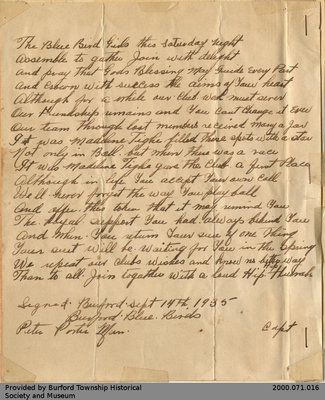 The Blue Bird Girls this Saturday Night
Assemble to gather Join with delight
And pray that Gods Blessing May Guide Every Part
And Crown with success the aims of Your heart
Although for a while our Club must sever
Our friendship remains and You Cant Change it Ever
Our team through lost members received Many a Jar
It was Madeline Tighe filled there spots with a star
Not only in Ball, but when there was a race
It was Madeline Tighe gave the Club a first Place
Although in life You accept Your own Call
We'll never forget the way You play ball
And offer this token that it may remind You
The Loyal support You had always behind You
And When You return Your sure of one thing
Your suit will be waiting for You in the Spring
We repeat our Clubs wishes and know no better way
Than to all Join together with a loud Hip Hurrah
Signed. Burford Sept 14th, 1935
Burford Blue Birds
Peter Porter Man.
Capt
Provided by Burford Township Historical
Society and Museum
2000.071.016